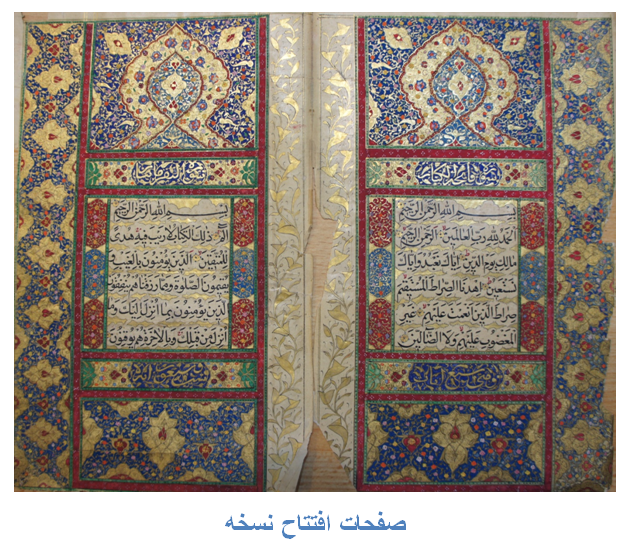 سورة فاتحة الكتاب
بسم الله الرحمن الرحيم
الحمد لله رب العالمين الرحمن الرحيم
مالك يوم الدين اياك نعبد واياك
نستعين اهدنا الصراط المستقيم
صراط الذين انعمت عليهم غير
المغضوب عليهم ولا الضالين
بسم الله الرحمن الرحيم
الم ذلك الكتاب لا ريب فيه هدى
للمتقين الذين يؤمنون بالغيب و
يقيمون الصلوة ومما رزقناهم ينفقون و
الذين يؤمنون بما انزل اليك وما
انزل من قبلك وبالاخرة هم يوقنون
صفحات افتتاح نسخه